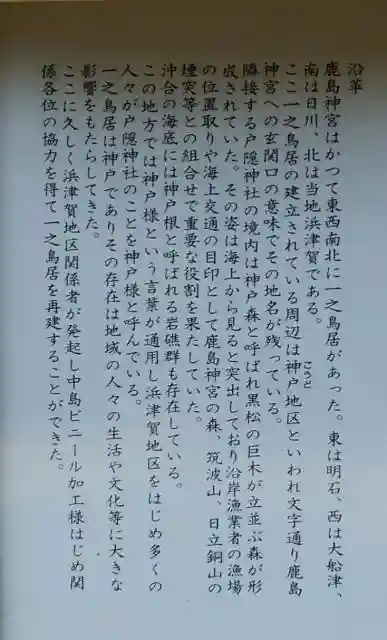 沿革
鹿島神宮はかつて東西南北に一之鳥居があった。東は明石、西は大船津、
南は日川、北は当地浜津賀である。
ここ一之鳥居の建立されている周辺は神戸地区といわれ文字通り鹿島
ごうど
神宮への玄関口の意味でその地名が残っている。
隣接する戸隠神社の境内は神戸森と呼ばれ黒松の巨木が立並ぶ森が形
成されていた。その姿は海上から見ると突出しており沿岸漁業者の漁場
の位置取りや海上交通の目印として鹿島神宮の森、筑波山、日立銅山の
煙突等との組合せで重要な役割を果たしていた。
沖合の海底には神戸根と呼ばれる岩礁群も存在している。
この地方では神戸様という言葉が通用し浜津賀地区をはじめ多くの
人々が戸隠神社のことを神戸様と呼んでいる。
一之鳥居は神戸でありその存在は地域の人々の生活や文化等に大きな
影響をもたらしてきた。
ここに久しく浜津賀地区関係者が発起し中島ビニール加工様はじめ関
係各位の協力を得て一之鳥居を再建することができた。